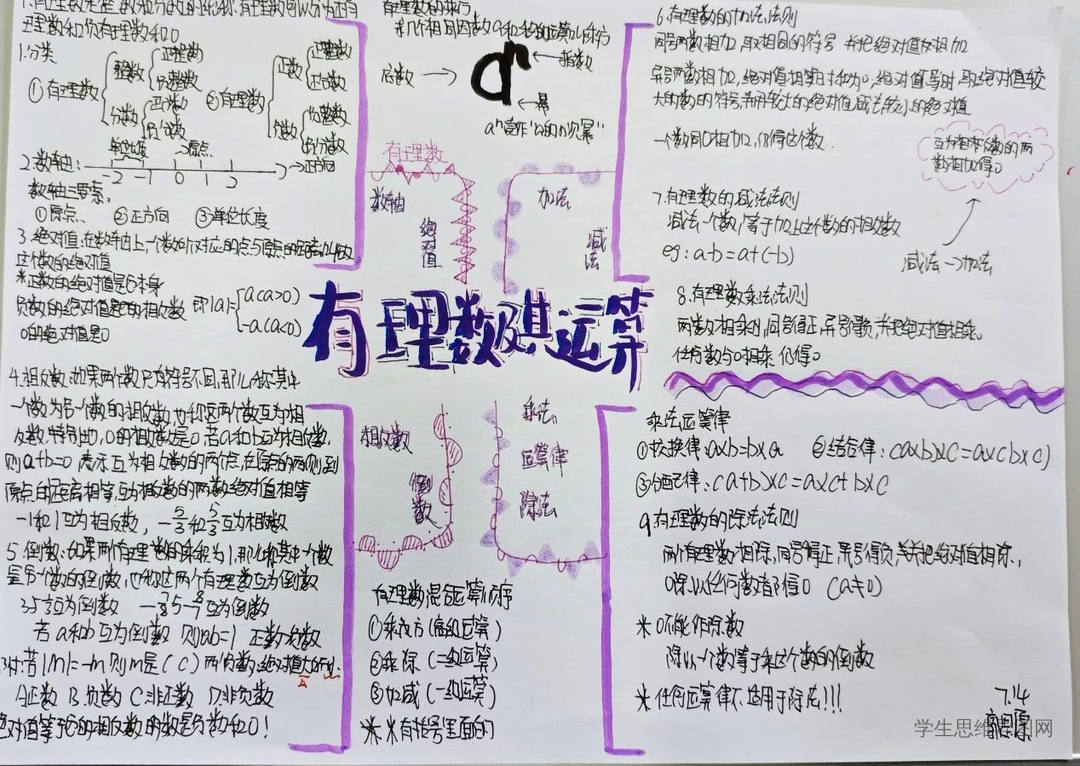 1.有理数是整数和分数的统称,有理数可以分为正有
理数和负有理数和0
1.分类
①有理数 整数 正整数
负整数
分数 正分数
负分数
②有理数 正数 正整数
正分数
负数 负整数
负分数
2.数轴: 单位长度 →原点 →正方向
-2 -1 0 1 2
数轴三要素。
①原点、 ②正方向 ③单位长度
3.绝对值:在数轴上一个数所对应的点与原点的距离叫做
这个数的绝对值
*正数的绝对值是它本身
负数的绝对值是它的相反数 即|a|= a(a>0)
-a(a<0)
0的绝对值是0
4.相反数:如果两个数只有符号不同,那么称其中
一个数为另一个数的相反数,也称这两个数互为相
反数,特别地,0的相反数是0.若a和b互为相反数,
则a+b=0 表示互为相反数的两个点,在原点的两侧,到
原点的距离相等,互为相反数的两数绝对值相等
-1和1互为相反数, -5/3和5/3互为相反数
5.倒数:如果两个有理数的乘积为1,那么称其中一个数
是另一个数的倒数,也称这两个有理数互为倒数
互为倒数 互为倒数
若a和b互为倒数 则ab=1
若|m|=-m则m是(C)
A.正数 B.负数 C.非正数 D.非负数
绝对值等于它的相反数的数是负数和0!
有理数的乘方
求几个相同因数a的积的运算叫乘方
底数→ aⁿ ←指数
←幂
aⁿ读作"a的n次幂"
有理数
数轴
绝对值
加法
减法
有理数及其运算
相反数
倒数
乘法
运算律
除法
有理数混合运算顺序
①乘方(高级运算)
②乘除(二级运算)
③加减(一级运算)
**有括号里面的
6.有理数的加法法则
同号两数相加,取相同的符号,并把绝对值相加
异号两数相加,绝对值相等时和为0;绝对值不等时,取绝对值较
大的数的符号,并用较大的绝对值减去较小的绝对值
一个数同0相加,仍得这个数.
互为相反数的两
数相加得0
7.有理数的减法法则
减去一个数,等于加上这个数的相反数
eg:a-b=a+(-b)
减法→加法
8.有理数乘法法则
两数相乘,同号得正,异号得负,并把绝对值相乘。
任何数与0相乘,仍得0
乘法运算律
①交换律:axb=bxa ②结合律:(axb)xc=ax(bxc)
③分配律:(a+b)xc=axc+bxc
9.有理数的除法法则
两个有理数相除,同号得正,异号得负,并把绝对值相除.,
0除以任何数都得0 (a≠0)
*0不能作除数
除以一个数等于乘这个数的倒数
*任何运算律不适用于除法!!!
7.14
学生思维导图网